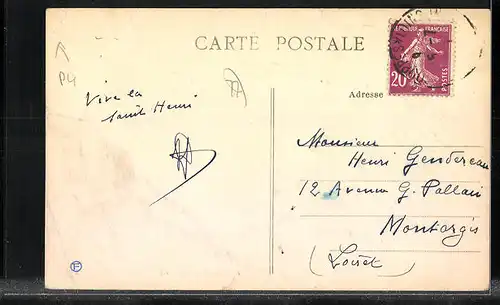 CARTE POSTALE
REPUBLIQUE FRANÇAISE
20
POSTES
P4
Vive la
Saint Henri
Adresse
Monsieur
Henri Gendereau
12 Avenue G. Pallain
Montargis
(Loiret)